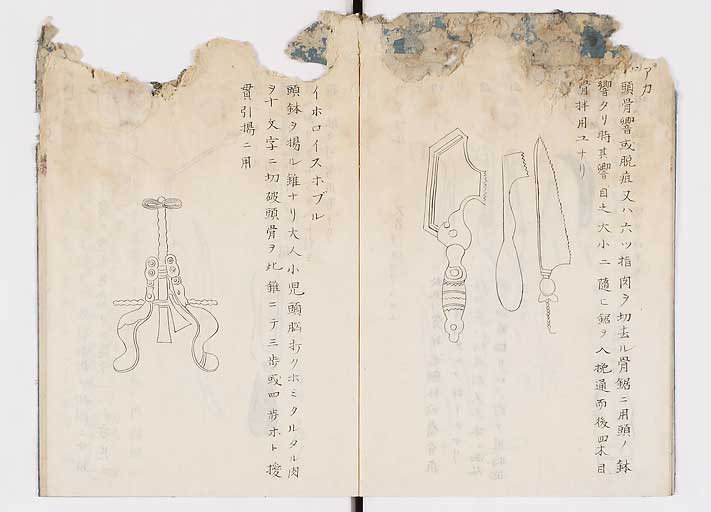 アカ
頭骨響或脱疽又ハ六ツ指肉ヲ切去ル骨鋸ニ用頭ノ鉢
響タリ時其響目之大小ニ随ヒ鋸ヲ入挽通而後四木目
骨抔用ユナリ
イホロイスホブル
頭鉢ヲ揚ル錐ナリ大人小児頭脳打クホミクルタル肉
ヲ十文字ニ切破頭骨ヲ此錐ニテ三歩或四歩ホト
貫引揚ニ用